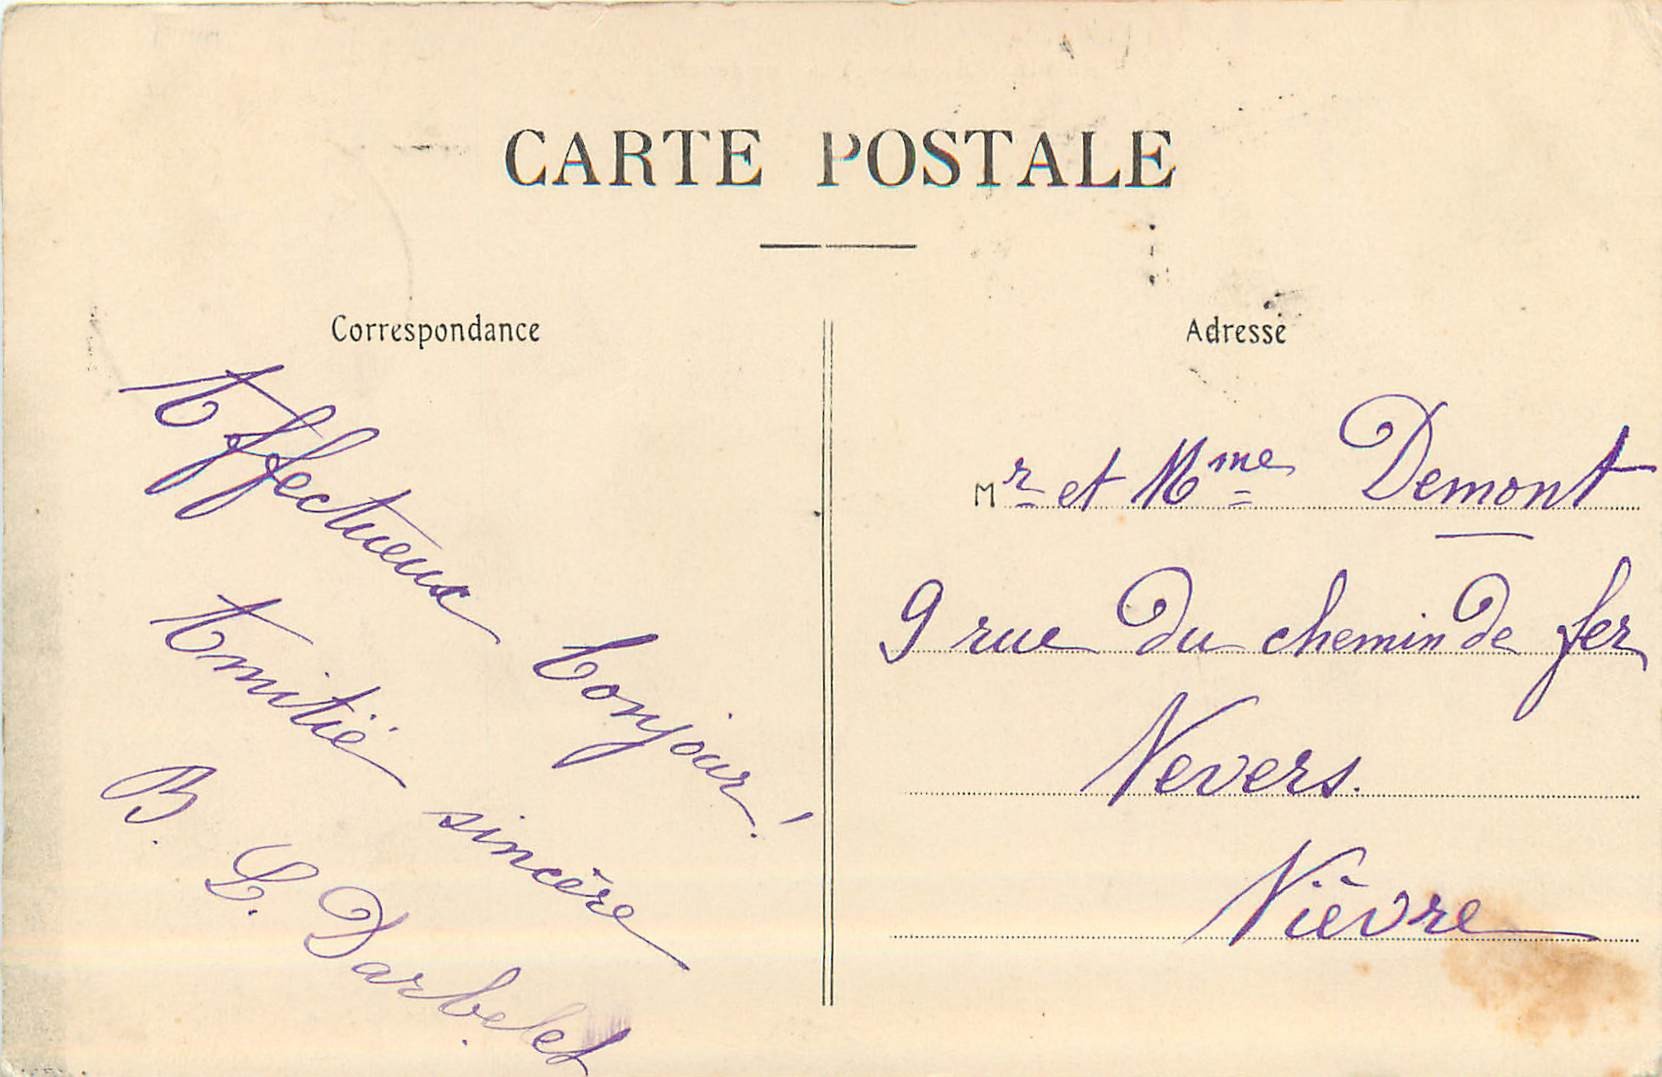 CARTE POSTALE
Correspondance
Affectueux bonjour!
Amitié sincère
B. L. Darbelet
Adresse
Mr et Mme Demont
9 rue du chemin de fer
Nevers.
Nièvre